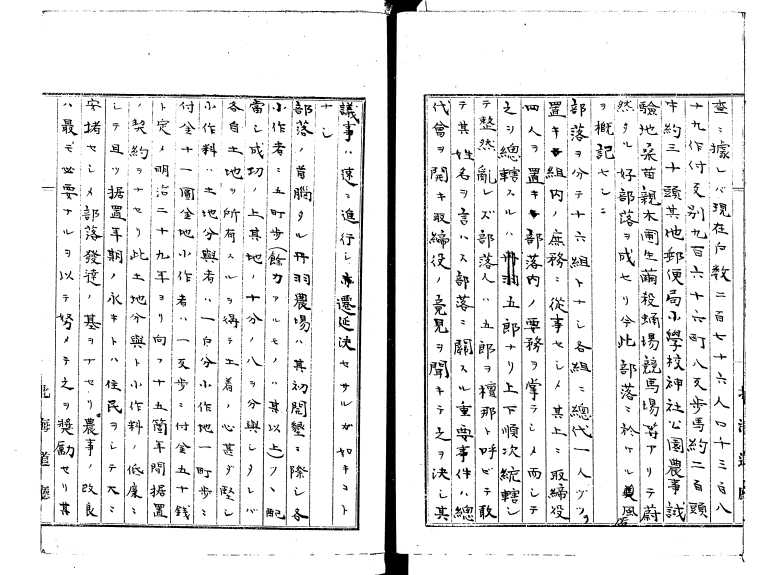 査ニ據レバ現在戸数二百七十六人四十三百八
十九作付反別九百六十六町八反歩馬約二百頭
牛約三十頭其他郵便局小學校神社公園農事試
驗地桑苗親木圃生繭殺蛹場競馬場等アリテ蔚
然タル好部落ヲ成セリ今此部落ニ於ケル美風
ヲ概記センニ
部落ヲ分テ十六組トナシ各組ニ總代一人ヅヽ
置キ組内ノ庶務ニ從事セシメ其上ニ取締役
四人ヲ置キ部落内ノ要務ヲ掌ラシメ而シテ
之ヲ總轄スルハ丹羽五郎ナリ上下順次統轄シ
テ整然亂レズ部落人ハ五郎ヲ檀那ト呼ビテ敢
テ其姓名ヲ言ハス部落ニ關スル重要事件ハ總
代會ヲ開キ取締役ノ意見ヲ聞キテ之ヲ決シ其
議事ハ速ニ進行シ遷延決セサルガ如キコト
ナシ
部落ノ首腦タル丹羽農場ハ其初開墾ニ際シ各
小作者ニ五町歩(餘力アルモノハ其以上)ヲ配
當シ成功ノ上其地ノ十分ノ八ヲ分與シタレバ
各自土地ヲ所有スルヲ得テ土着ノ心甚ダ堅シ
小作料ハ土地分與者ハ一戸分小作地一町歩ニ
付金十一圓全地小作者ハ一反歩ニ付金五十錢
ト定メ明治二十九年ヨリ向フ十五箇年間据置
ノ契約ヲナセリ此土地分與ト小作料ノ低廉ニ
シテ且ツ据置年期ノ永キトハ住民ヲシテ大ニ
安堵セシメ部落發達ノ基ヲナセリ農事ノ改良
ハ最モ必要ナルヲ以テ努メテ之ヲ奨勵セリ其
北海道廳